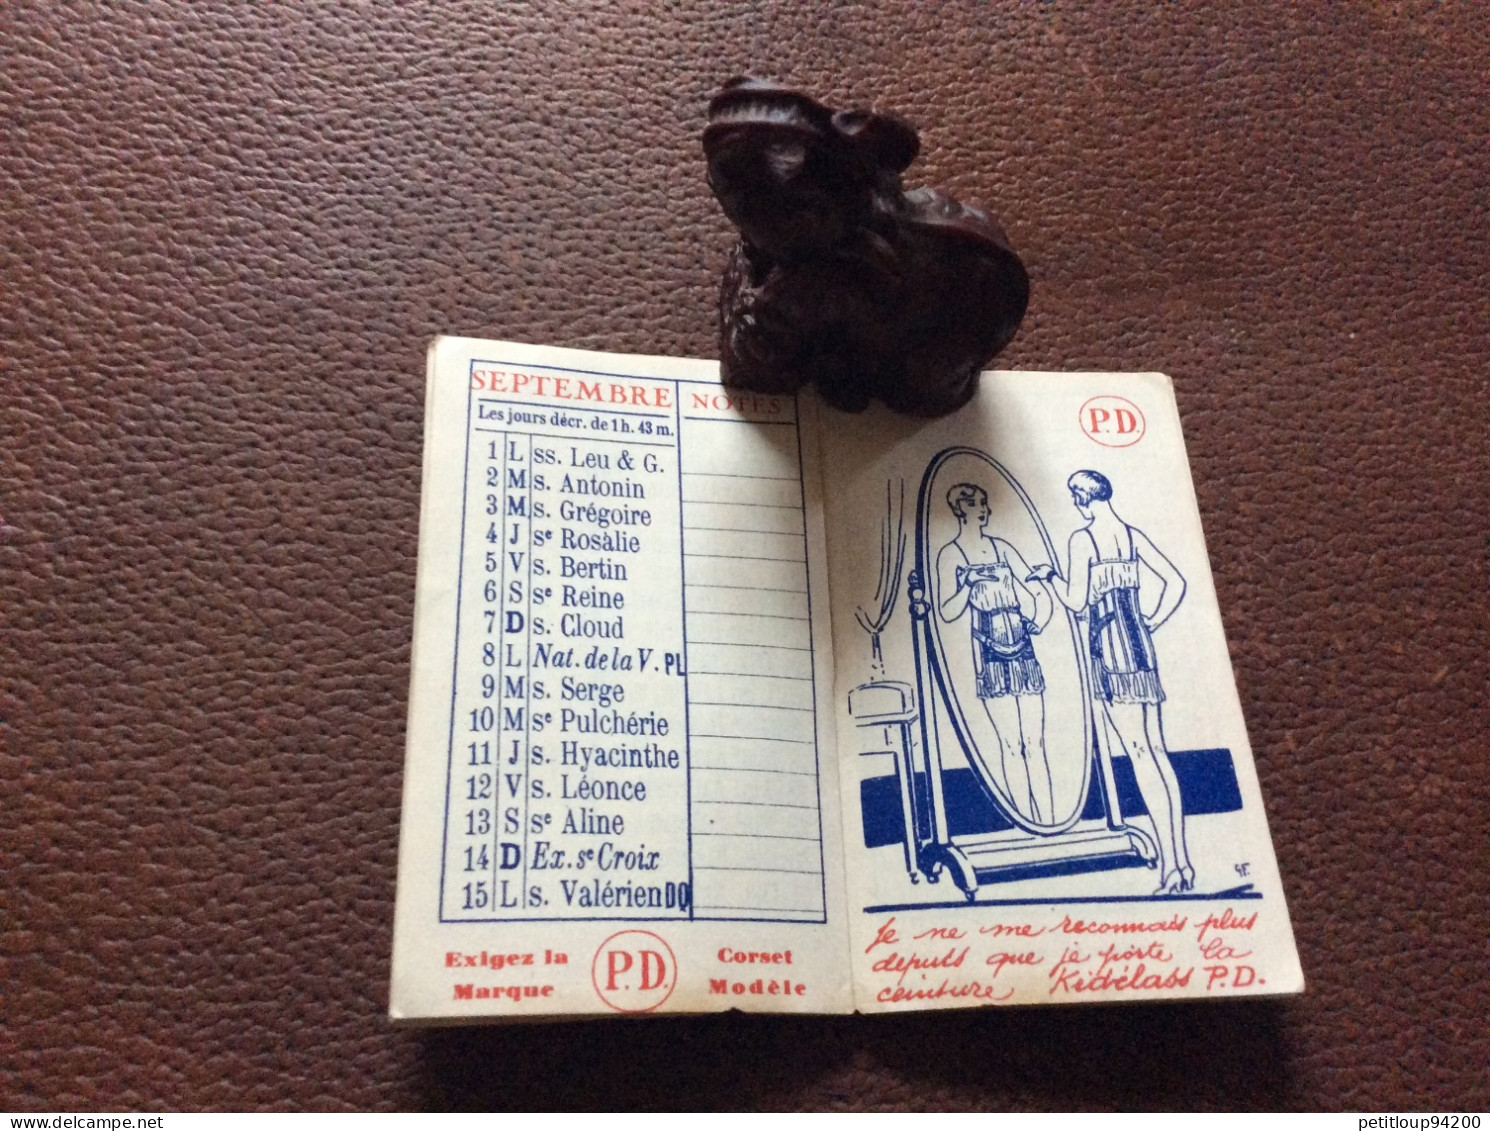 SEPTEMBRE NOTES
Les jours décr. de 1 h. 43 m.
1 L ss. Leu & G.
2 M s. Antonin
3 M s. Grégoire
4 J se Rosalie
5 V s. Bertin
6 S se Reine
7 D s. Cloud
8 L Nat. de la V. PL
9 M s. Serge
10 M se Pulchérie
11 J s. Hyacinthe
12 V s. Léonce
13 S se Aline
14 D Ex. se Croix
15 L s. Valérien DQ
Exigez la Marque
P.D.
Corset Modèle
P.D.
Je ne me reconnais plus
depuis que je porte la
ceinture Kidéclass P.D.
petitloup94200